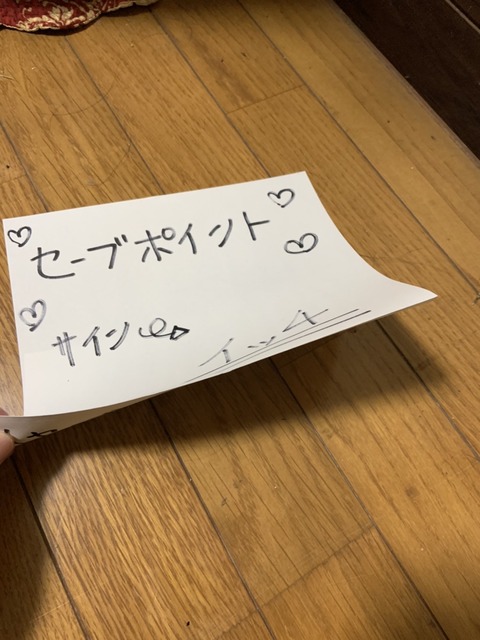 セーブポイント
サイン
イッチ